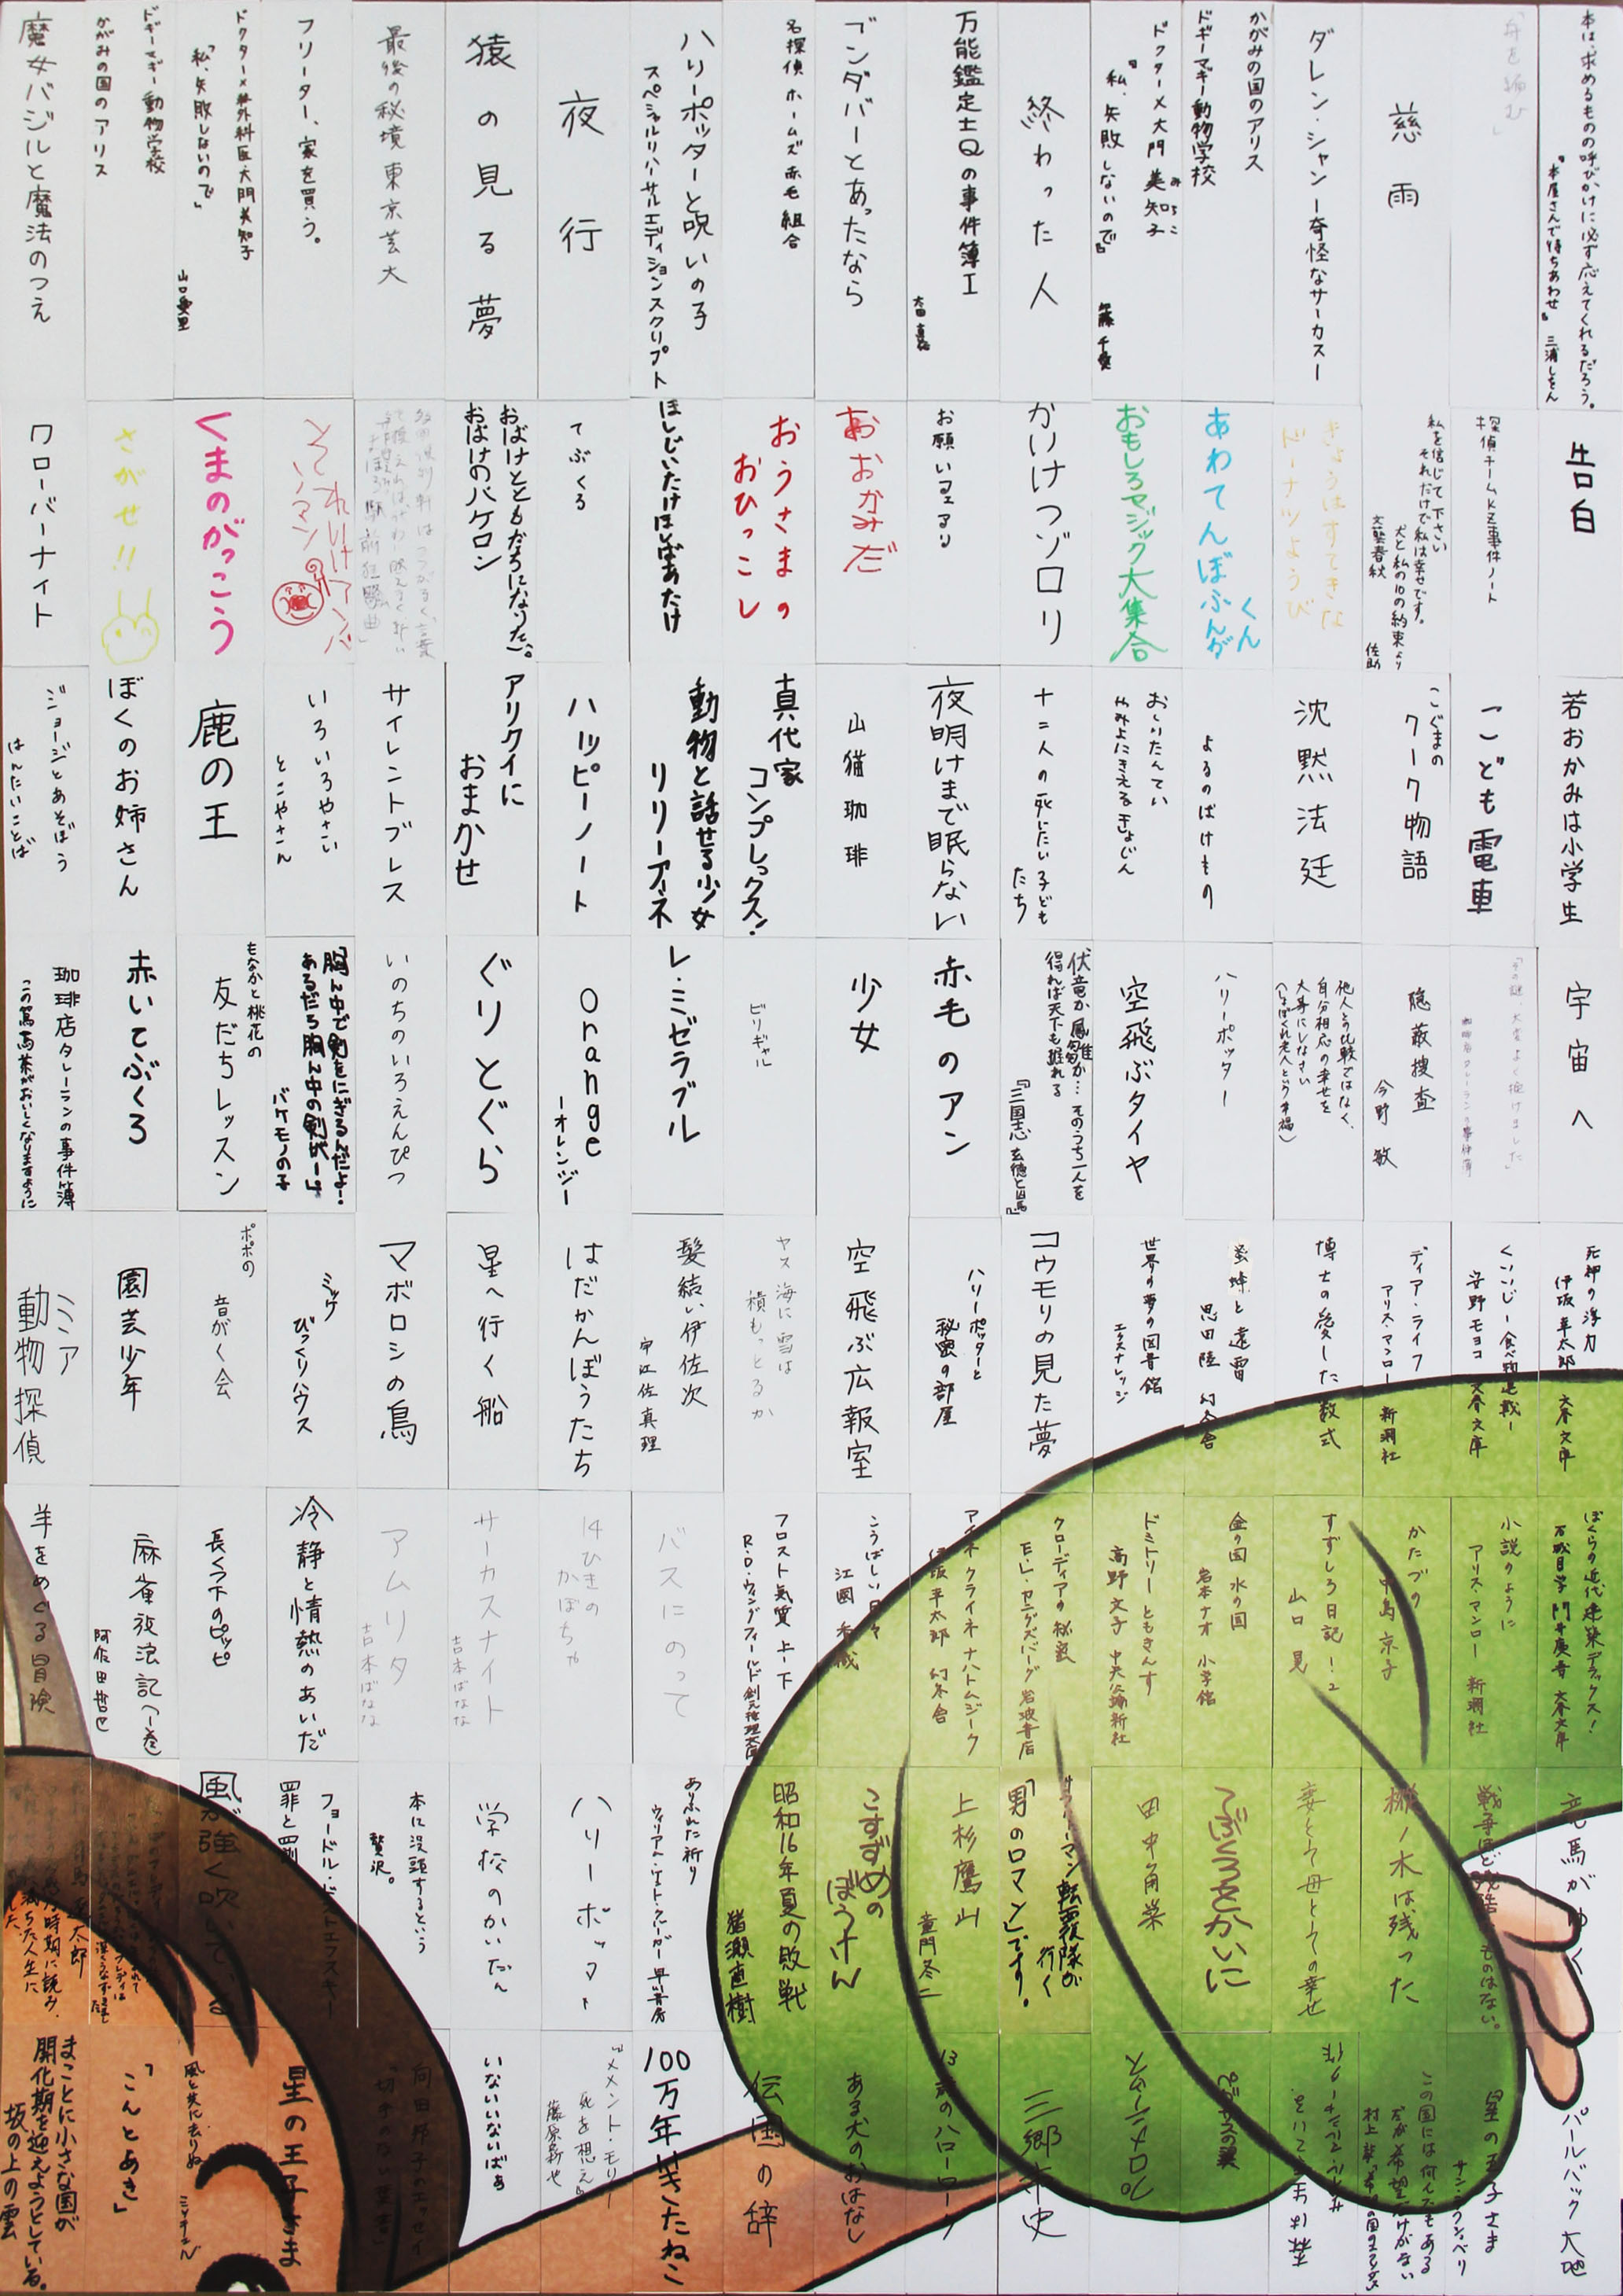 本は、求めるものの呼びかけに必ず応えてくれるだろう。
『本屋さんで待ちあわせ』 三浦しをん
「舟を編む」
慈雨
ダレン・シャンー奇怪なサーカスー
かがみの国のアリス
ドギーマギー動物学校
ドクターX 大門美知子
みちこ
『私、失敗しないので』
終わった人
万能鑑定士Qの事件簿I
ブンダバーとあったなら
名探偵 ホームズ 赤毛組合
ハリーポッターと呪いの子
スペシャルリハーサルエディションスクリプト
夜行
猿の見る夢
最後の秘境 東京芸大
フリーター、家を買う。
ドクターX 外科医・大門美知子
「私、失敗しないので」
ドギーマギー動物学校
かがみの国のアリス
魔女バジルと魔法のつえ
告白
探偵チームKZ事件ノート
私を信じて下さい
それだけで私は幸せです。
犬と私の10の約束より
文藝春秋
佐助
きょうはすてきな
ドーナツようび
あわてんぼふんがくん
おもしろマジック大集合
かいけつゾロリ
お願いフェアリー
おおかみだ
おうさまの
おひっこし
ほしじいたけほしばあたけ
てぶくろ
おばけとともだちになった。
おばけのバケロン
それいけアンパンマン
くまのがっこう
さがせ!!
ワローバーナイト
若おかみは小学生
こども電車
こぐまの
クーク物語
沈黙法廷
よるのばけもの
おしりたんてい
やみよにきえるきょじん
十二人の死にたい子どもたち
夜明けまで眠らない
山猫珈琲
真代家
コンプレックス!
動物と話せる少女
リリアーネ
ハッピーノート
アリクイに
おまかせ
サイレントブレス
いろいろやさい
とこやさん
鹿の王
ぼくのお姉さん
ジョージとあそぼう
はんたいことば
宇宙へ
隠蔽捜査
今野 敏
他人との比較ではなく、
自分相応の幸せを
大事にしなさい
ハリーポッター
空飛ぶタイヤ
伏竜か鳳雛か…そのうち一人を
得れば天下も握れる
『三国志』
赤毛のアン
少女
ビリギャル
レ・ミゼラブル
orange
ーオレンジー
ぐりとぐら
いのちのいろえんぴつ
「胸ん中で剣をにぎるんだよ!
あるだろ胸ん中の剣が!」
バケモノの子
もなかと桃花の
友だちレッスン
赤いてぶくろ
珈琲店タレーランの事件簿
この篤高茶がおいしくなりますように
死神の浮力
伊坂幸太郎 文春文庫
くいいじー食べ物連載ー
安野モヨコ 文春文庫
ディア・ライフ
アリス・マンロー 新潮社
博士の愛した数式
蜜蜂と遠雷
恩田陸 幻冬舎
世界の夢の図書館
エクスナレッジ
コウモリの見た夢
ハリーポッターと
秘密の部屋
空飛ぶ広報室
ヤマ 海に雪は
積もっとるか
髪結い伊佐次
宇江佐真理
はだかんぼうたち
星へ行く船
マボロシの鳥
ミッケ
びっくりハウス
ポポの
音がく会
園芸少年
ミア
動物探偵
ぼくらの近代建築デラックス!
万城目学 門井慶喜 文春文庫
小説のように
アリス・マンロー 新潮社
かたづの
中島京子
すずしろ日記ー2
山口 晃
金の国 水の国
岩本ナオ 小学館
ドミトリーともきんす
高野文子 中央公論新社
クローディアの秘密
E.L.カニグズバーグ 岩波書店
アイネクライネナハトムジーク
伊坂幸太郎 幻冬舎
こうばしい日々
江國香織
フロスト気質 上・下
R.D.ウィングフィールド 創元推理文庫
バスにのって
14ひきの
かぼちゃ
サーカスナイト
吉本ばなな
アムリタ
吉本ばなな
冷静と情熱のあいだ
長くつ下のピッピ
麻雀放浪記(一)巻
阿佐田哲也
羊をめぐる冒険
竜馬がゆく
戦争ほど残酷なものはない。
樅ノ木は残った
妻として母としての幸せ
てぶくろをかいに
田中角栄
サラリーマン転覆隊が
行く
「男」のロマンです。
上杉鷹山
童門冬二
こすずめの
ぼうけん
昭和16年夏の敗戦
猪瀬直樹
ありふれた祈り
ウィリアム・ケント・クルーガー 早川書房
ハリーポッター
学校のかいだん
本に没頭するという
贅沢。
フョードル・ドストエフスキー
罪と罰
風が強く吹いている
パールバック 大地
星の王子さま
サン・テグジュペリ
この国には何でもある
だが希望だけがない
村上龍
13歳のハローワーク
ある犬のおはなし
伝国の辞
100万年生きたねこ
『メメント・モリ』
死を想え
藤原新也
いないいないばあ
向田邦子のエッセイ
星の王子さま
風と共に去りぬ
ミッチェル
「こんとあき」
まことに小さな国が
開化期を迎えようとしている。
坂の上の雲